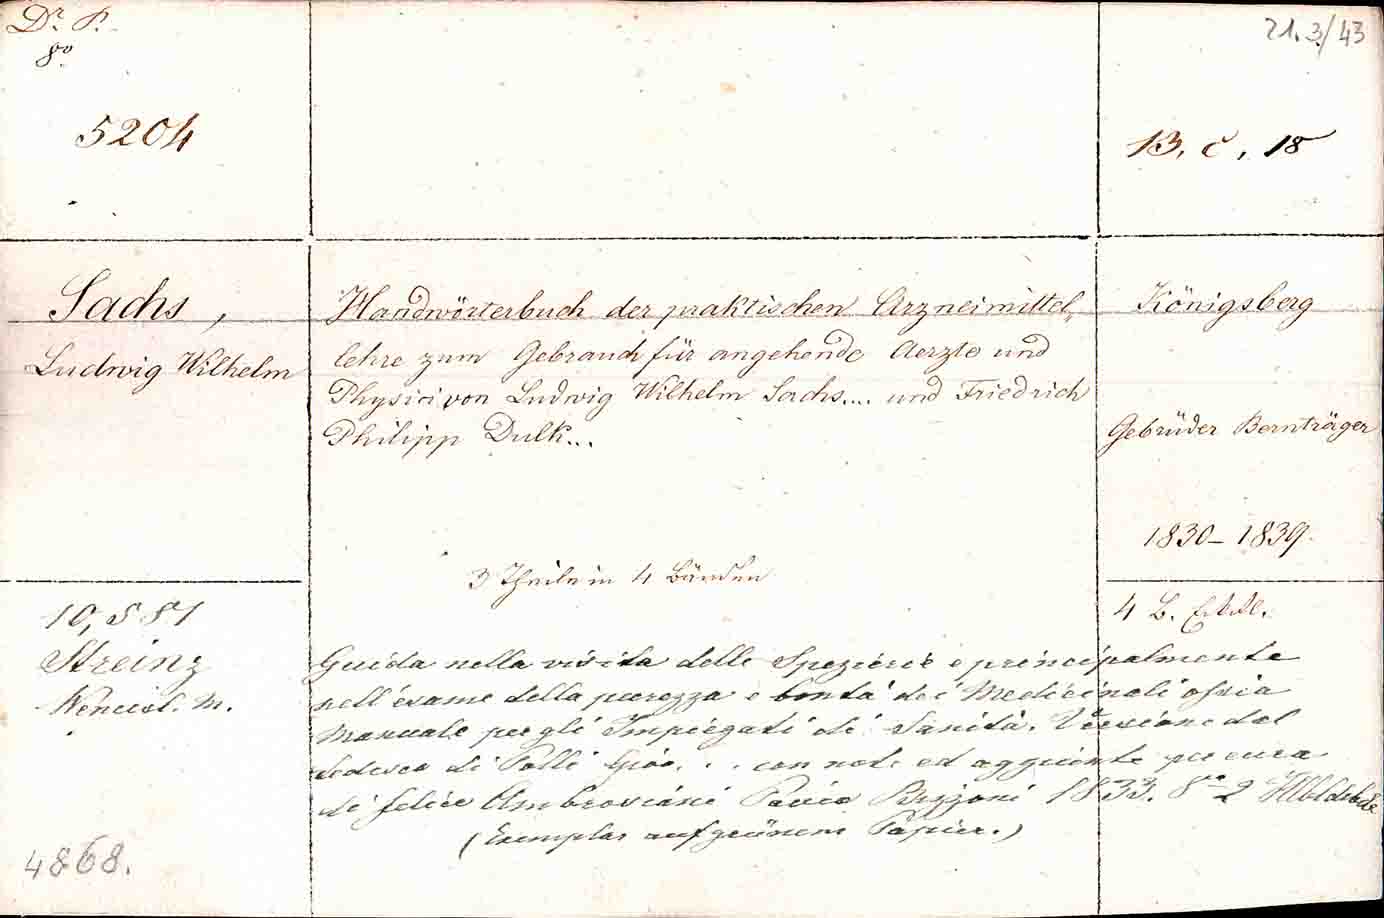 Dr. P.
8o
21.3/43
5204
13. C, 18
Sachs,
Ludwig Wilhelm
Handwörterbuch der praktischen Arzneimittel„
lehre zum Gebrauch für angehende Aerzte und
Physici von Ludwig Wilhelm Sachs.... und Friedrich
Philipp Dulk...
Königsberg
Gebrüder Bornträger
1830–1839
3 Theile in 4 Bänden
10,881
Streinz
Wencisl. M.
4 B.
Guida nella visita delle Spezierie e principalmente
nell'esame della purezza e bontá dei Medicinali ossia
Manuale per gli Impiegati di Sanitá. Versione dal
tedesco di Polli Gio... con note ed aggiunte per cura
di felice Ambrosiani Pavia Bizzoni 1833. 8o 2
(Exemplar auf grünem Papier.)
4868.